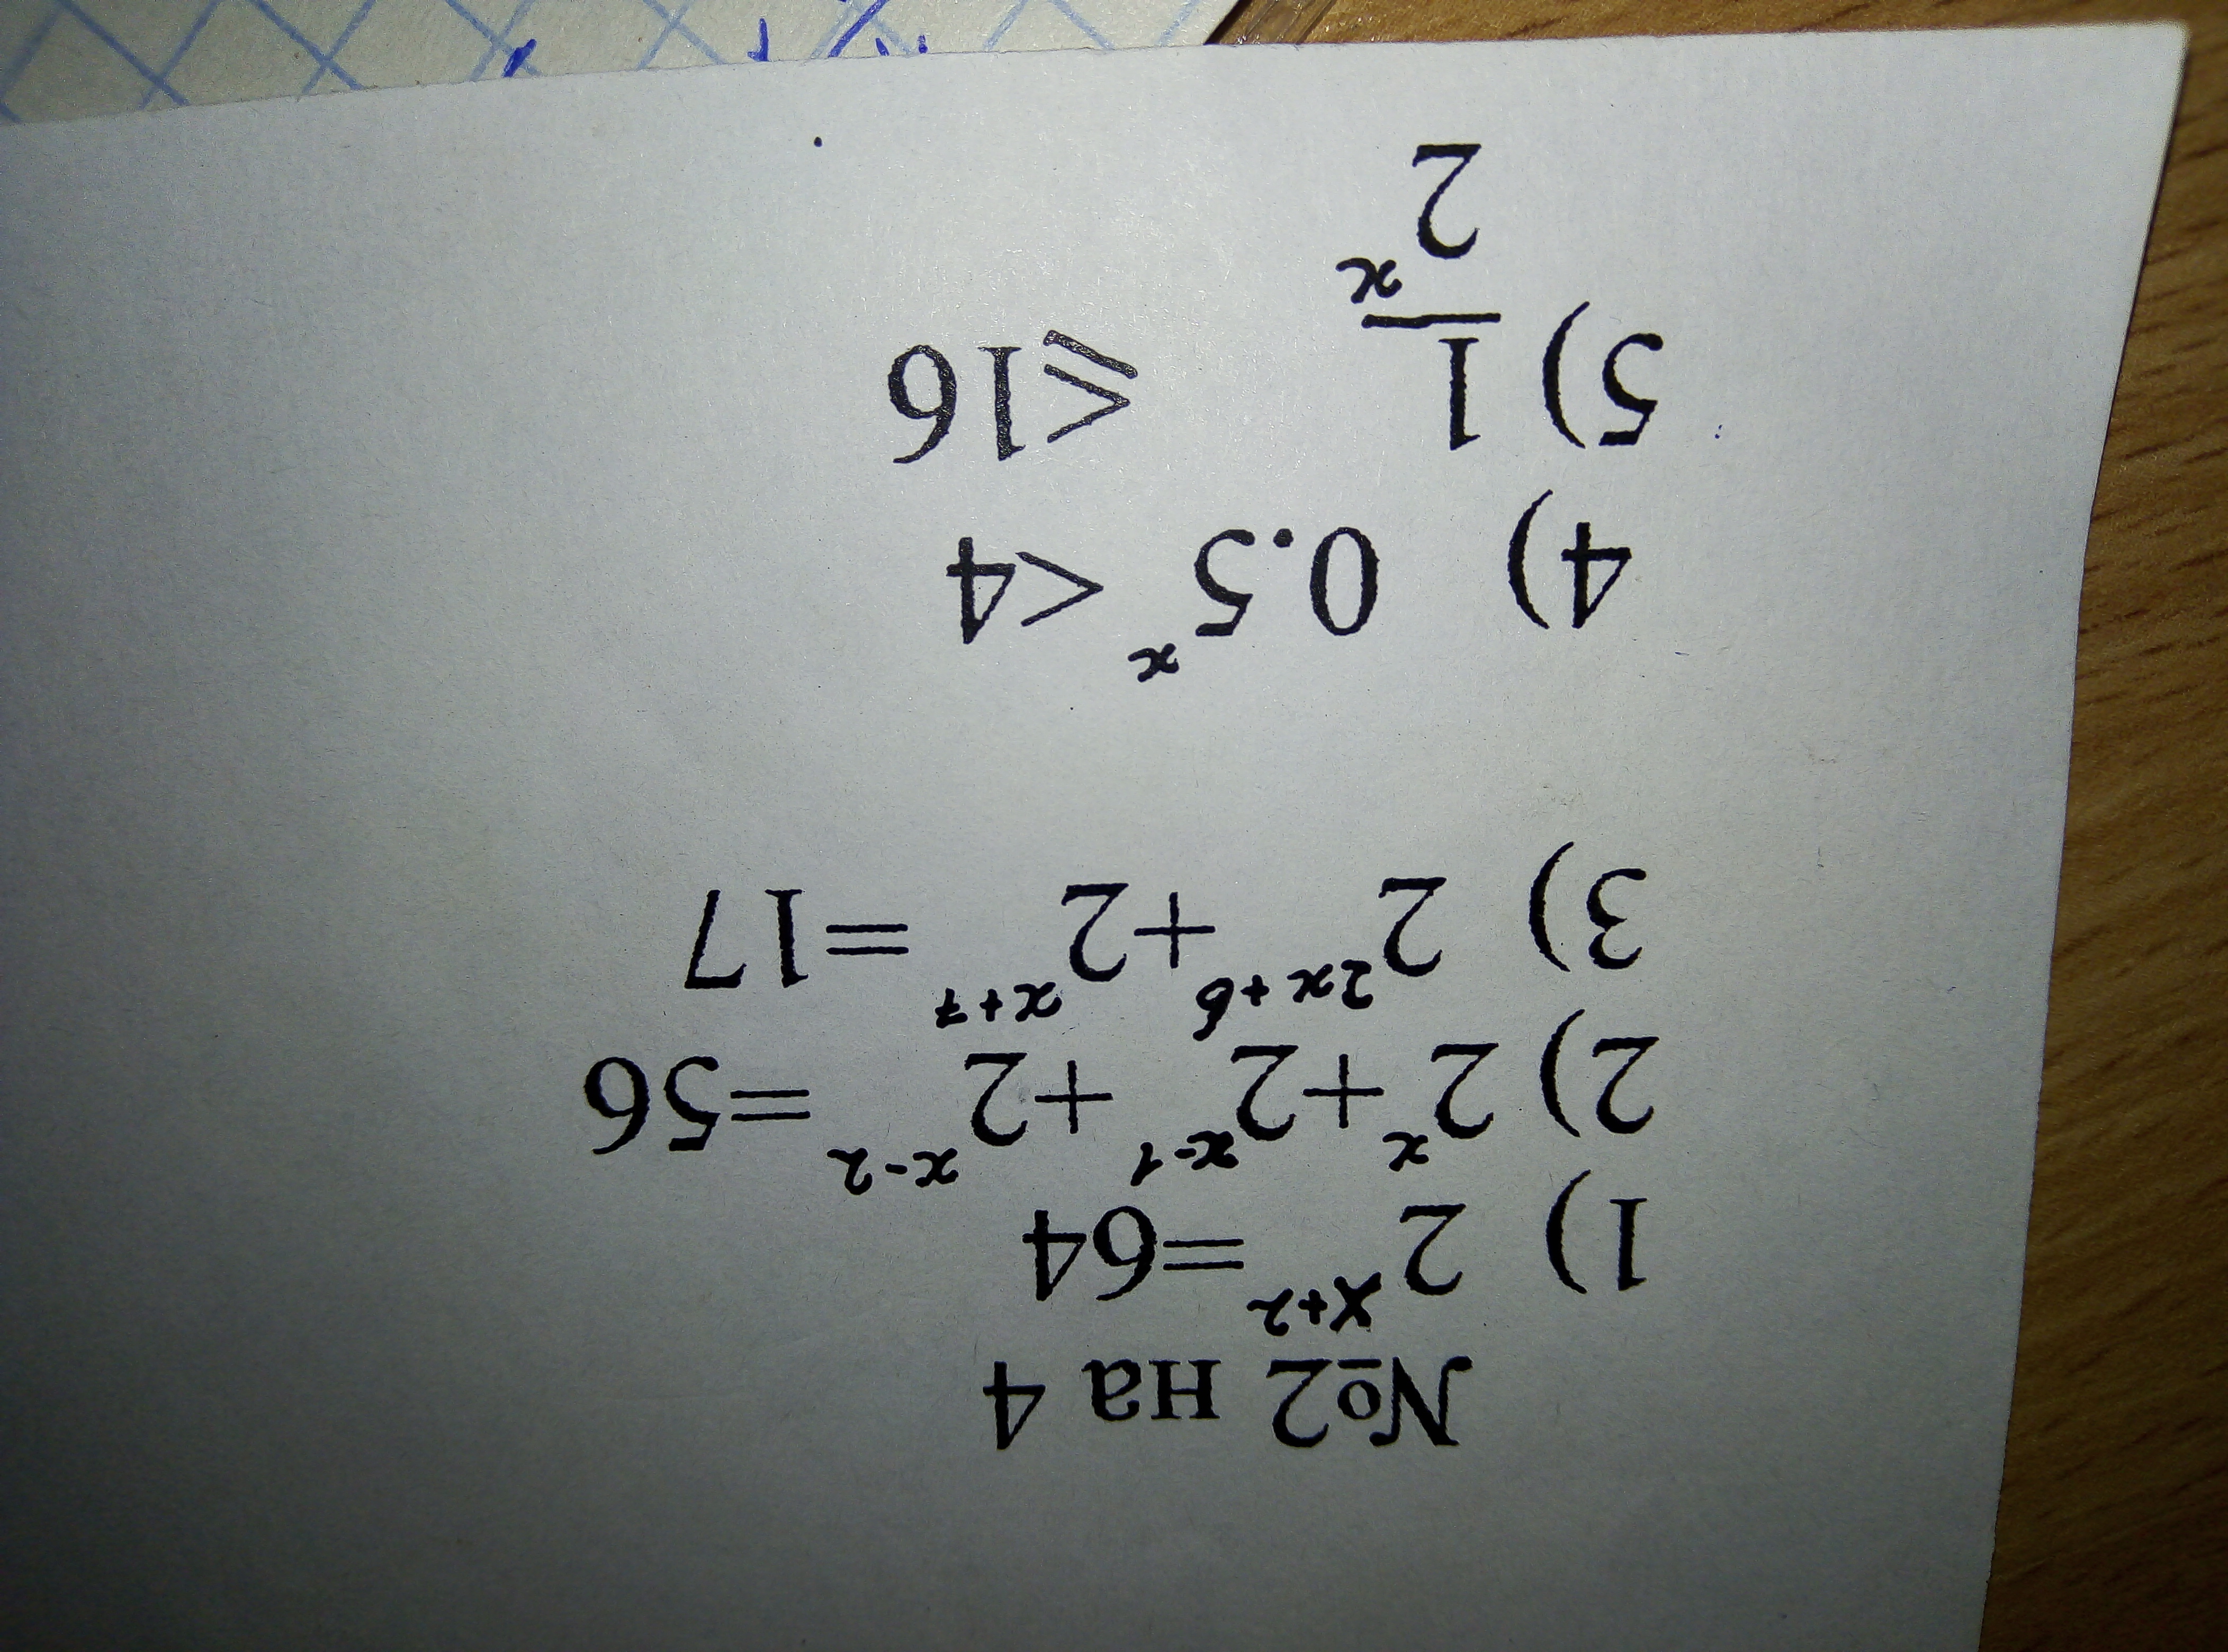 №2 на 4
1) 2ˣ⁺²=64
2) 2ˣ+2ˣ⁻¹+2ˣ⁻²=56
3) 2²ˣ⁺⁶+2ˣ⁺⁷=17
4) 0.5ˣ <4
5) 1 ⩽16
2ˣ